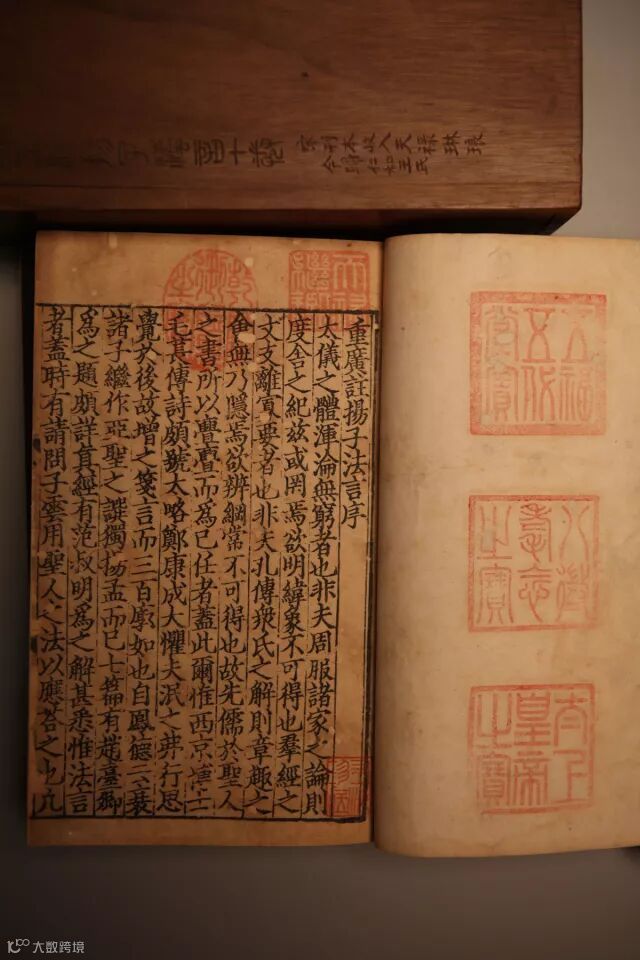 子法言十卷
宋刊本收入天祿琳琅
今歸仁和王氏
五福五代堂寶
八徵耄念之寶
太上皇帝之寶
天祿繼鑑
乾隆御覽之寶
重廣註揚子法言序
大儀之體渾淪無窮者也非夫周服諸家之論則
度舍之紀兹或罔焉欲明緯象不可得也羣經之
文支離寡要者也非夫孔傳衆氏之解則章趣之
會無乃隱焉欲辨綱常不可得也故先儒於聖人
之書所以亹亹而爲己任者蓋此爾惟西京漢士
毛萇傳詩頗號太略鄭康成大懼夫泯之弗行思
覺於後故增之箋言而三百廓如也自鳳德云衰
諸子繼作亞聖之譔獨揚孟而已七篇有趙臺卿
爲之題頗詳負經有范叔明爲之解甚悉惟法言
者蓋時有請問子雲用聖人之法以應荅之也凢
大数跨境